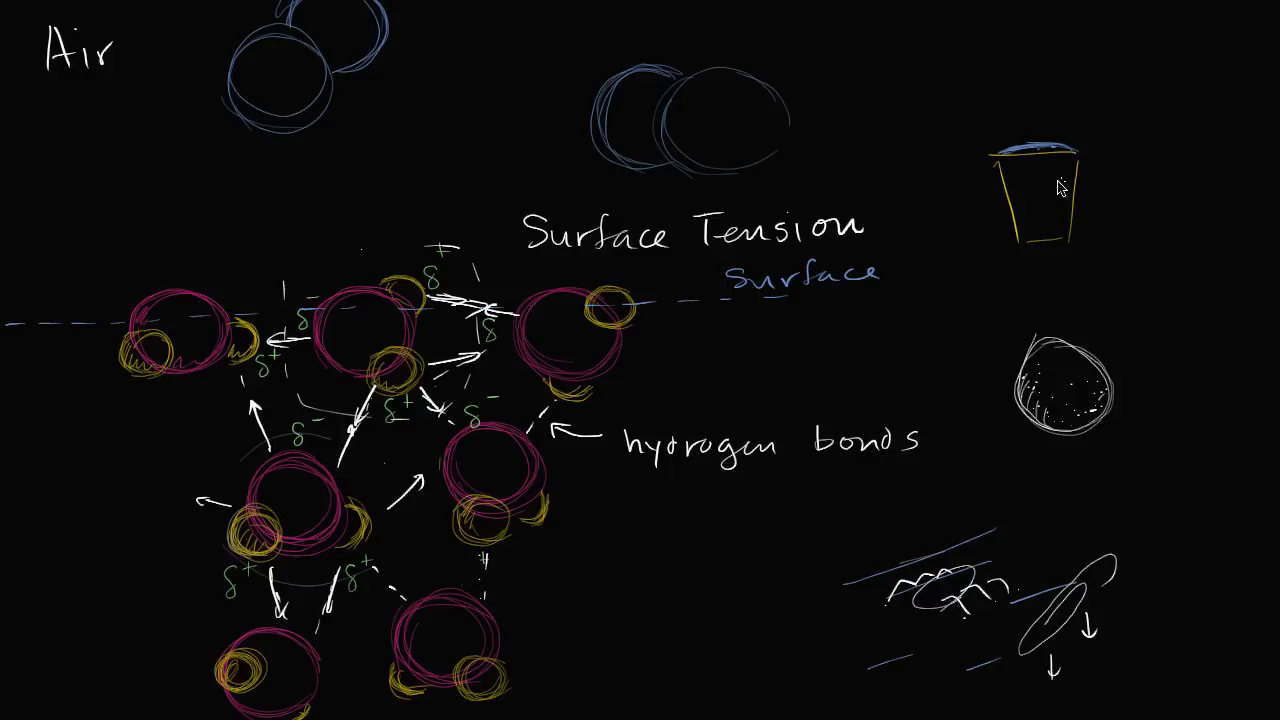 Air
Surface Tension
Surface
δ+
δ-
δ
δ+
δ+
δ-
δ-
hydrogen bonds
δ+
δ+